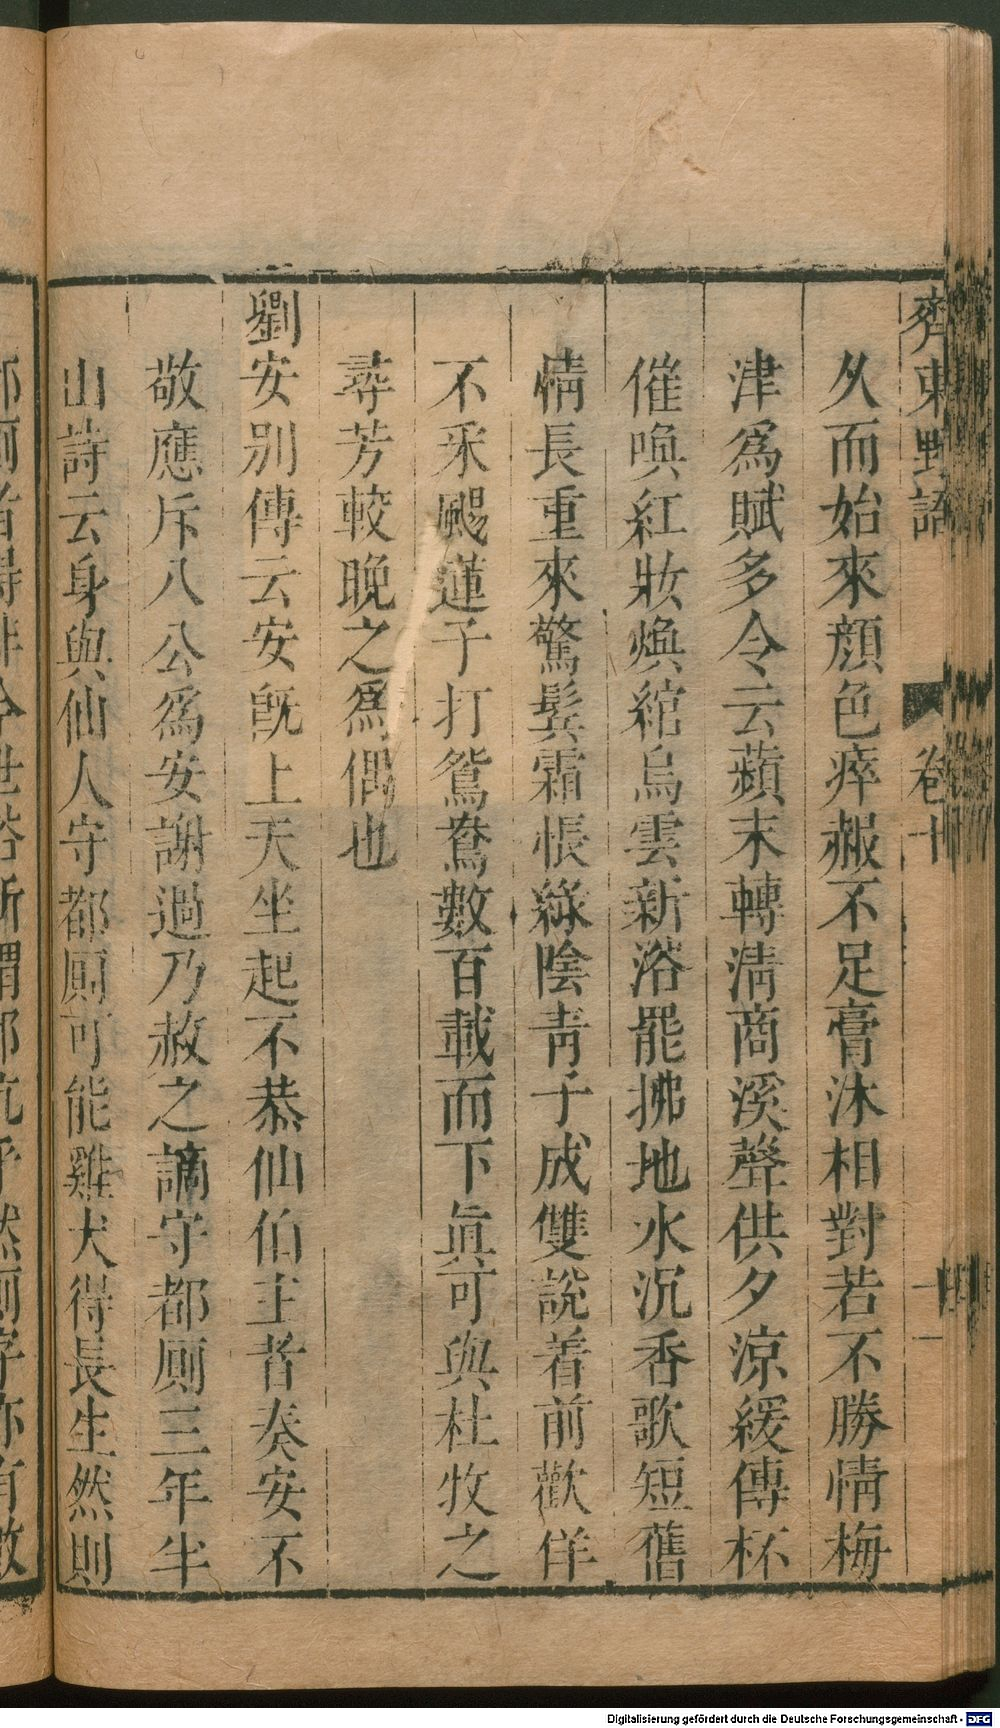 齊東野語
卷十
久而始來顔色瘁赧不足膏沐相對若不勝情梅
津爲賦多令云蘋末轉淸商溪聲供夕凉緩傳杯
催喚紅妝煥綰烏雲新浴罷拂地水沉香歌短舊
情長重來驚鬂霜悵綠陰靑子成雙說着前歡佯
不采颺蓮子打鴛鴦數百載而下眞可與杜牧之
尋芳較晚之爲偶也
劉安別傳云安旣上天坐起不恭仙伯主者奏安不
敬應斥八公爲安謝過乃赦之謫守都厠三年半
山詩云身與仙人守都厠可能雞犬得長生然則
Digitalisierung gefördert durch die Deutsche Forschungsgemeinschaft - DFG